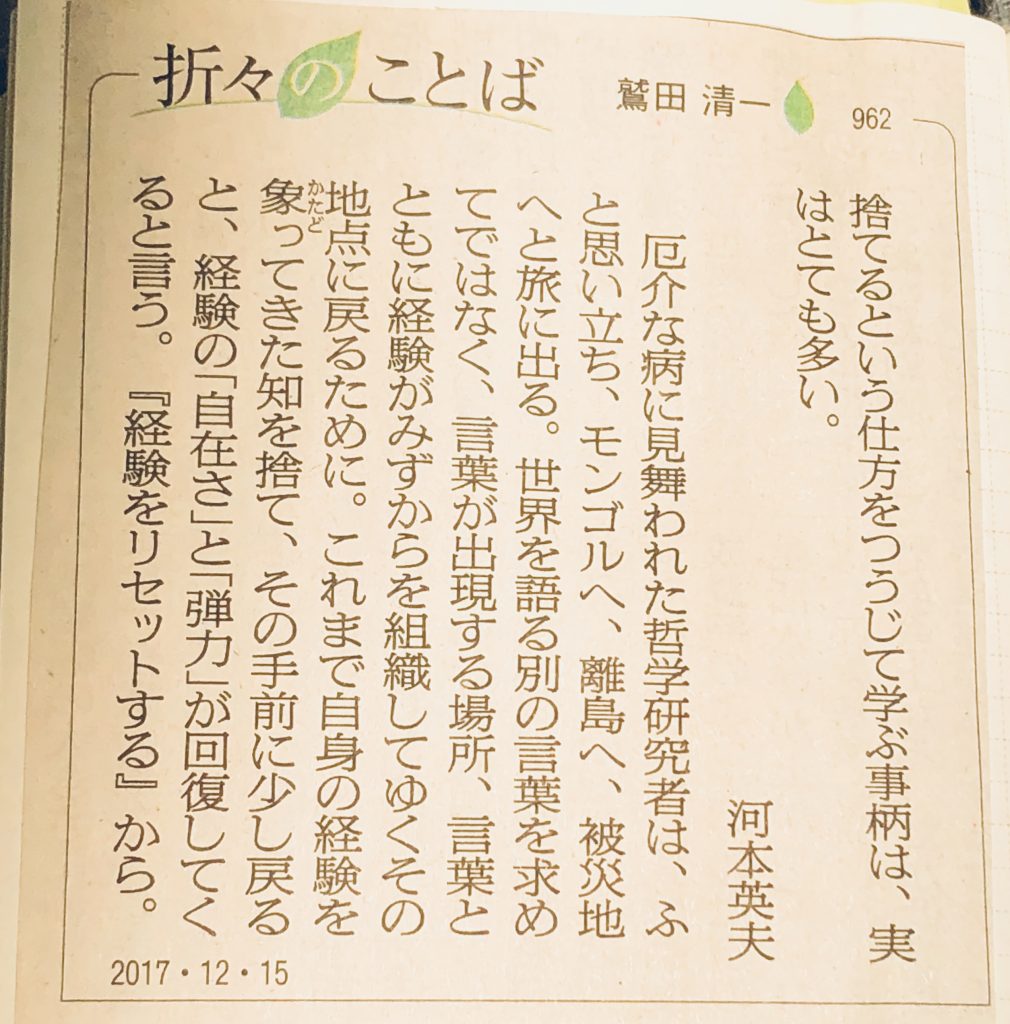 折々のことば
鷲田 清一
962
捨てるという仕方をつうじて学ぶ事柄は、実
はとても多い。
河本英夫
厄介な病に見舞われた哲学研究者は、ふ
と思い立ち、モンゴルへ、離島へ、被災地
へと旅に出る。世界を語る別の言葉を求め
てではなく、言葉が出現する場所、言葉と
ともに経験がみずからを組織してゆくその
地点に戻るために。これまで自身の経験を
かたど
象ってきた知を捨て、その手前に少し戻る
と、経験の「自在さ」と「弾力」が回復してく
ると言う。『経験をリセットする』から。
2017・12・15